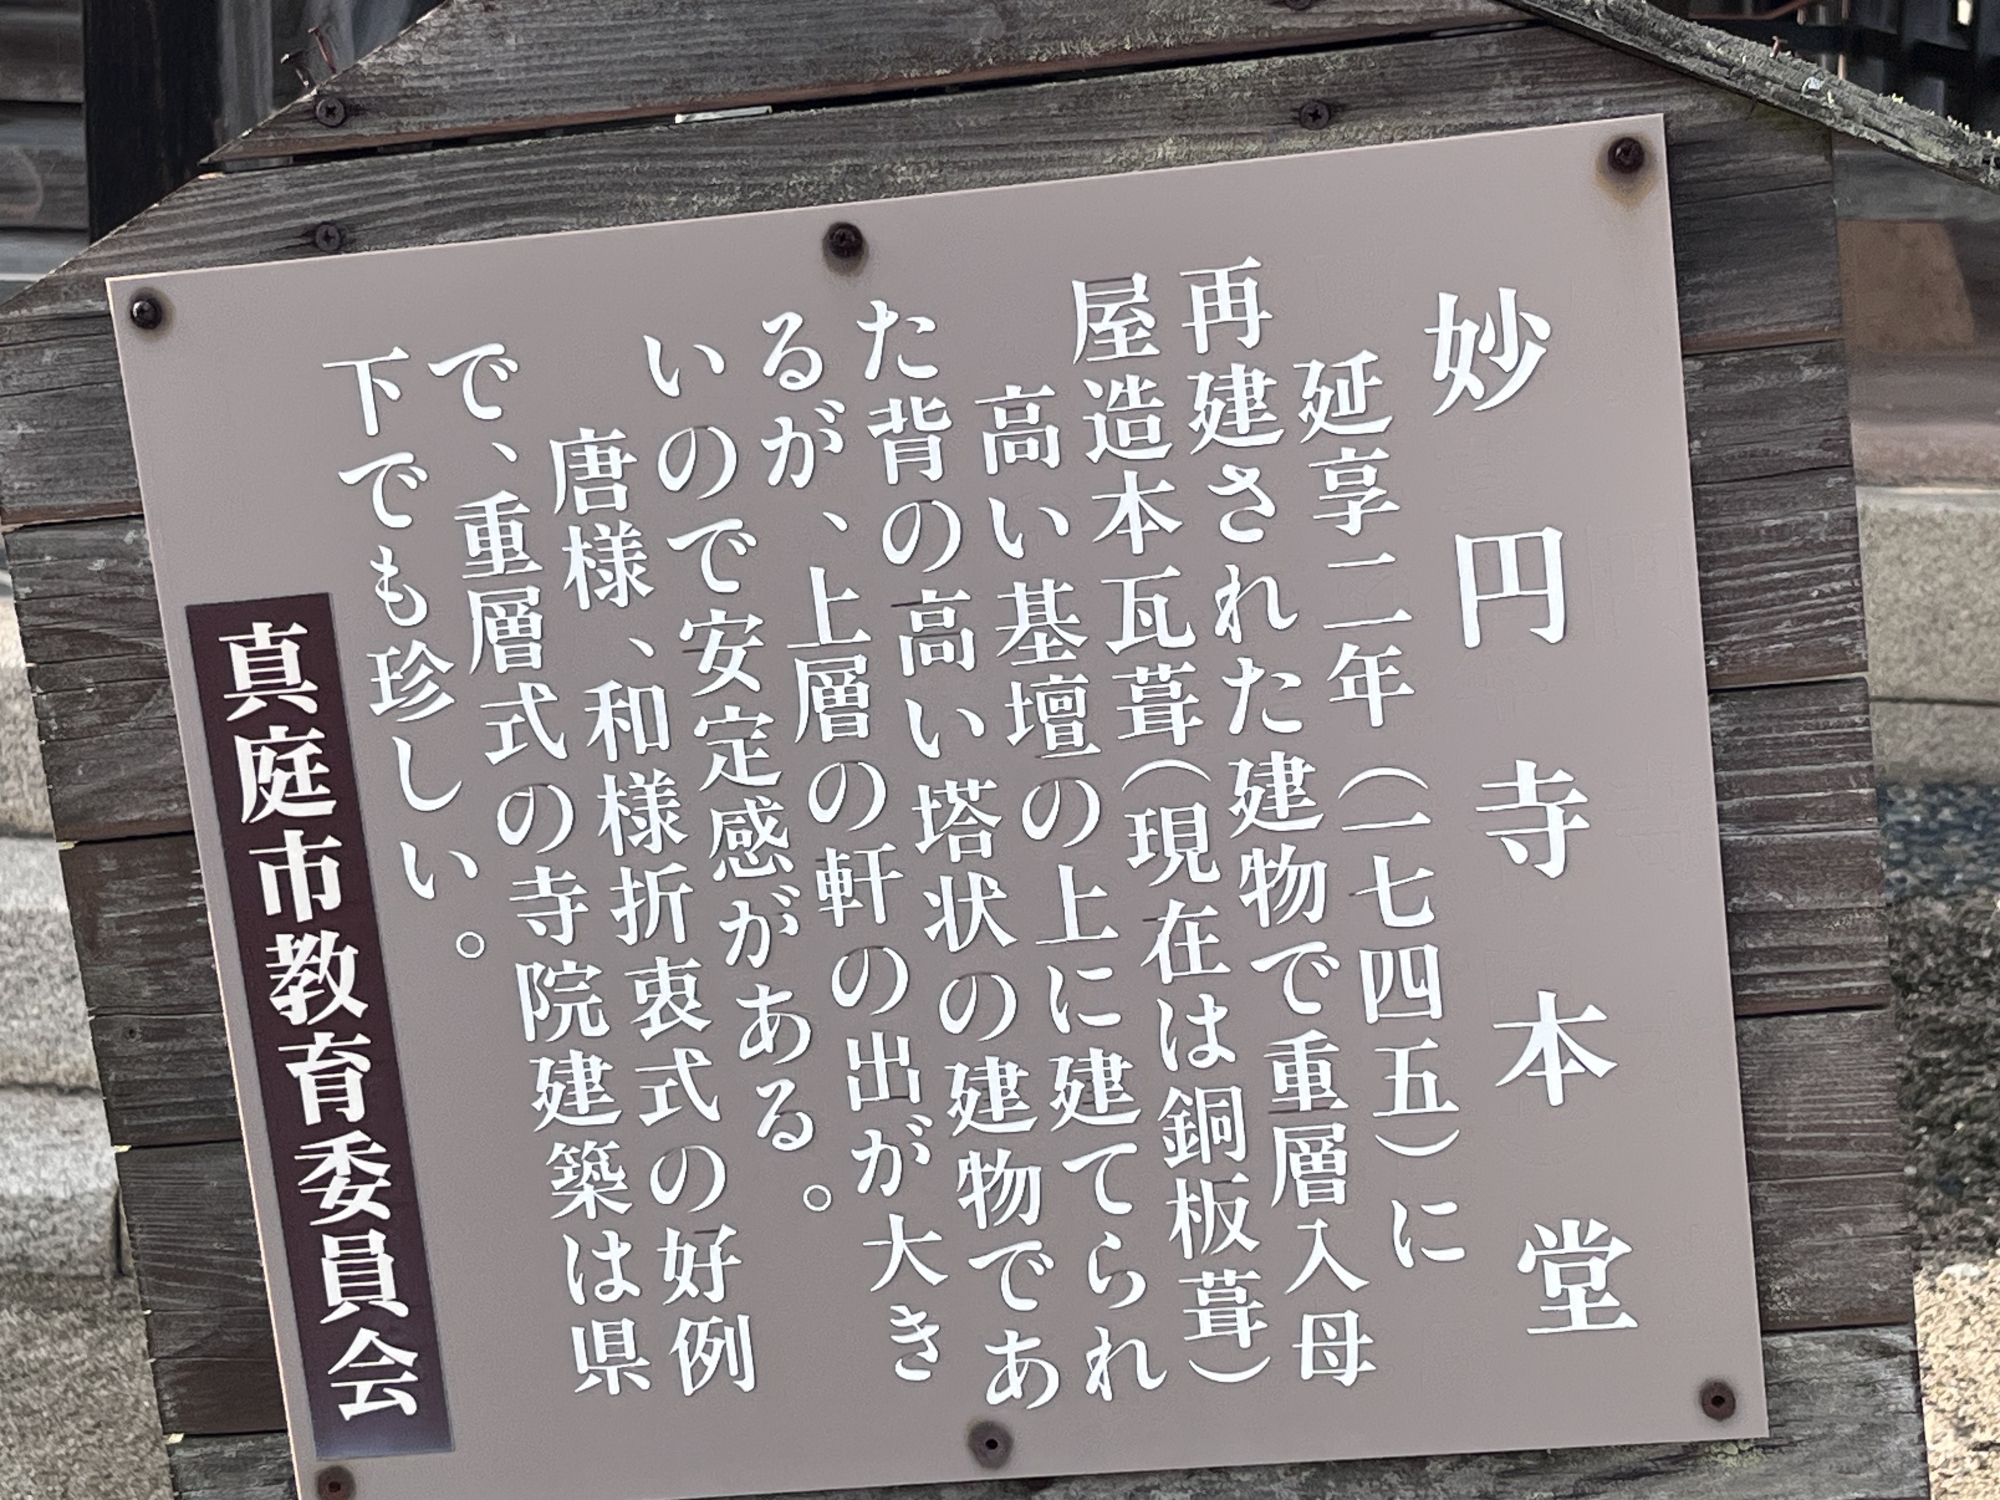 妙円寺本堂
延享二年（一七四五）に
再建された建物で重層入母
屋造本瓦葺（現在は銅板葺）
高い基壇の上に建てられ
た背の高い塔状の建物であ
るが、上層の軒の出が大き
いので安定感がある。
唐様、和様折衷式の好例
で、重層式の寺院建築は県
下でも珍しい。
真庭市教育委員会